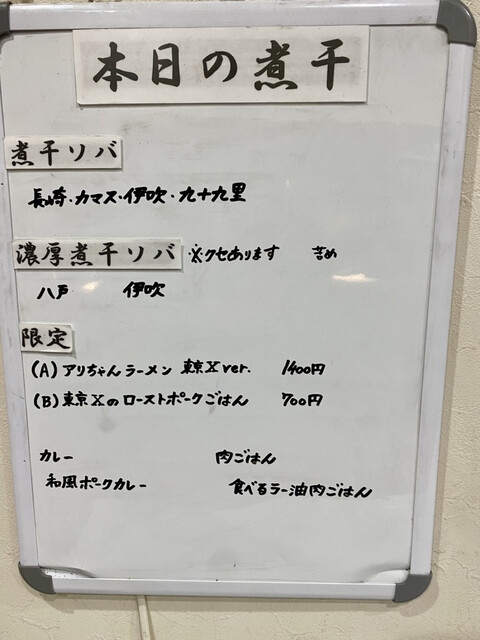 本日の煮干
煮干ソバ
長崎・カマス・伊吹・九十九里
濃厚煮干ソバ ※クセあります 苦め
八戸 伊吹
限定
(A) アリちゃんラーメン 東京X ver. 1400円
(B) 東京Xのローストポークごはん 700円
カレー 肉ごはん
和風ポークカレー 食べるラー油肉ごはん